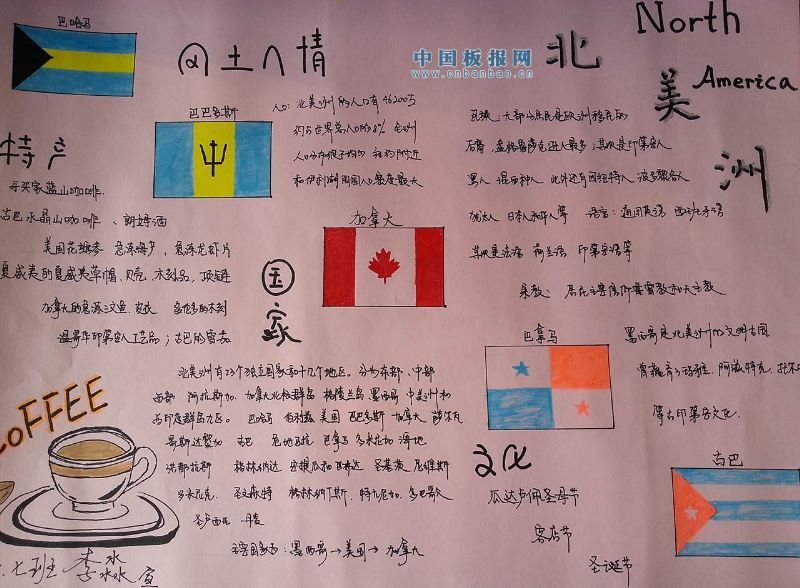 North
America
北
美
洲
中国板报网
www.cnbanbao.cn
风土人情
巴哈马
巴巴多斯
加拿大
巴拿马
古巴
国
家
人口：北美洲的人口有46200万
约占世界总人口的8% 全洲
人口分布很不均匀
和伊利湖周围人口密度最大
民族：大部分居民是欧洲移民的
后裔，盎格鲁萨克逊人最多；其次是印第安人
黑人 混血种人 此外还有因纽特人 波多黎各人
犹太人 日本人和华人等 语言：通用英语 西班牙语
其次是法语 荷兰语 印第安语等
宗教： 居民主要信仰基督教和天主教
特产
牙买家蓝山咖啡
古巴水晶山咖啡、朗姆酒
美国花旗参
夏威夷的夏威夷草帽、贝壳、木刻品、项链
加拿大的
温哥华印第安人工艺品；古巴的雪茄
北美洲有23个独立国家和十几个地区。分为东部、中部
西部 阿拉斯加、加拿大北极群岛 格陵兰岛 墨西哥 中美洲和
西印度群岛九区。 巴哈马 伯利兹 美国 巴巴多斯 加拿大 萨尔瓦
哥斯达黎加 古巴 危地马拉 巴拿马 多米尼加 海地
洪都拉斯 格林纳达 安提瓜和巴布达 圣基茨 尼维斯
牙买加 圣文森特 格林纳丁斯、特立尼加、多巴哥
圣卢西亚 丹麦
墨西哥→美国→加拿大
墨西哥是北美洲的文明古国
曾孕育了玛雅，阿兹特克，托尔
等古印第安文化。
文化
瓜达卢佩圣母节
客店节
圣诞节
COFFEE
七班 李冰冰 宣